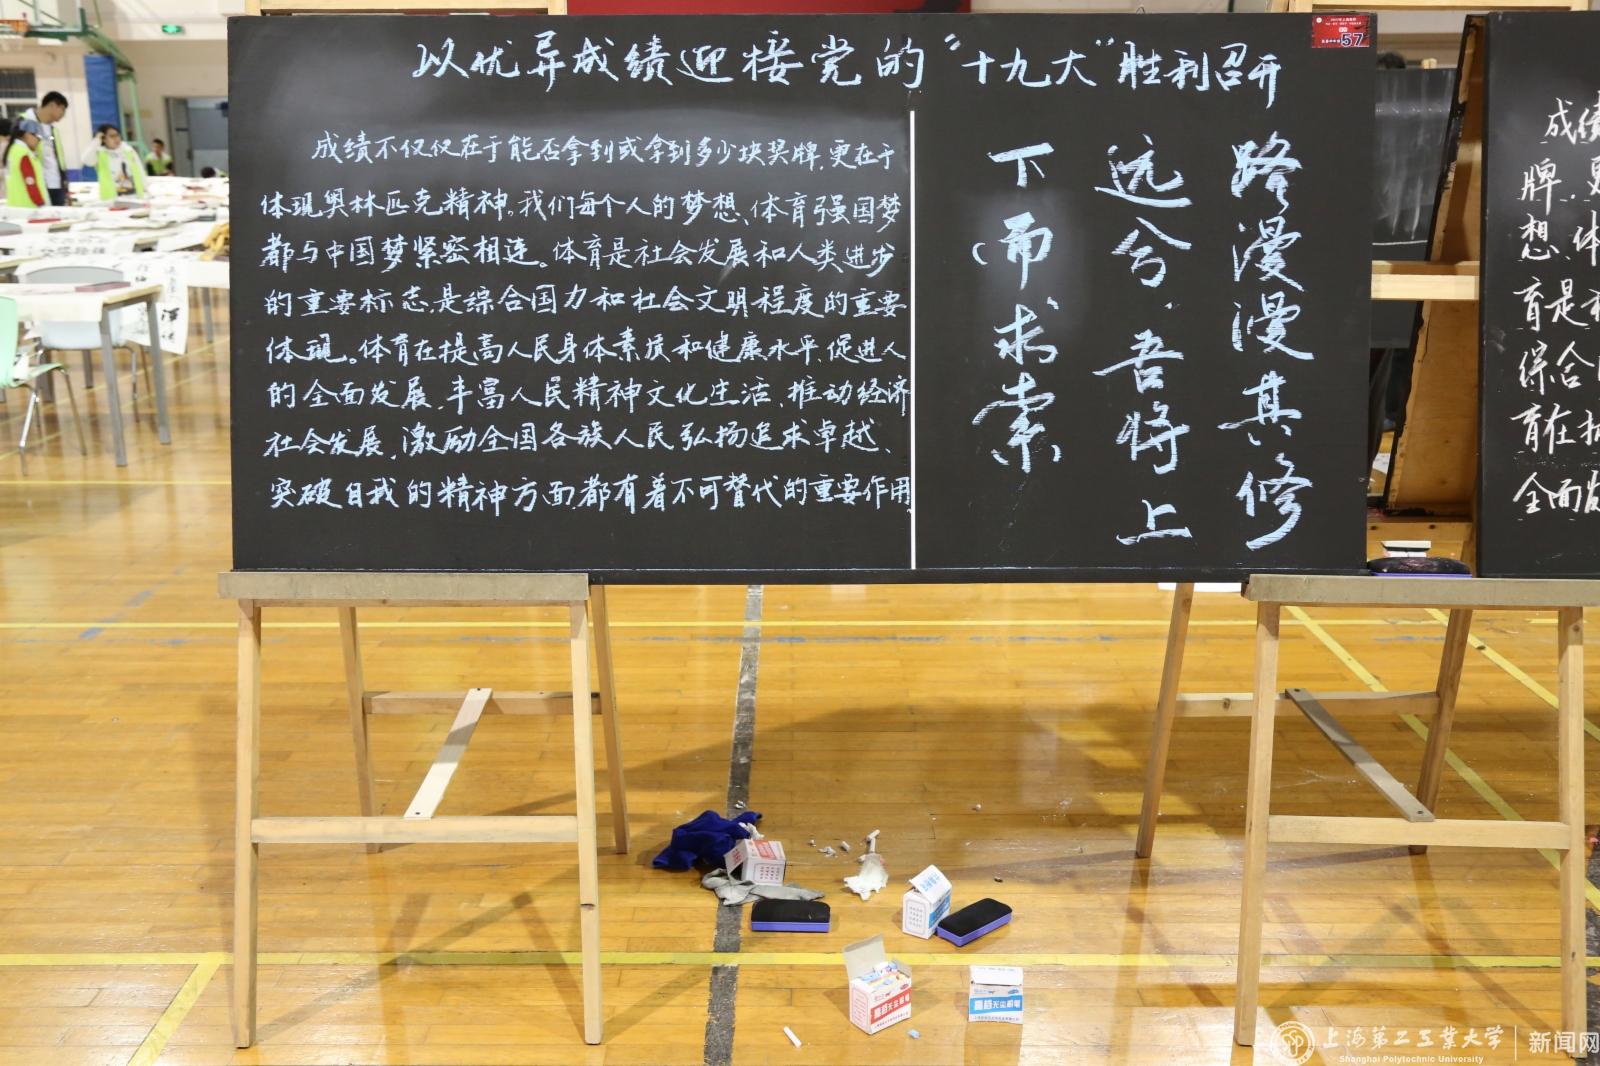 以优异成绩迎接党的“十九大”胜利召开
57
成绩不仅仅在于能否拿到或拿到多少块奖牌，更在于
体现奥林匹克精神。我们每个人的梦想、体育强国梦
都与中国梦紧密相连。体育是社会发展和人类进步
的重要标志，是综合国力和社会文明程度的重要
体现。体育在提高人民身体素质和健康水平，促进人
的全面发展，丰富人民精神文化生活，推动经济
社会发展，激励全国各族人民弘扬追求卓越、
突破自我的精神方面，都有着不可替代的重要作用
路漫漫其修
远兮，吾将上
下而求索
成绩
牌，更
想、体
育是社
综合国
育在提
全面发
上海第二工业大学
Shanghai Polytechnic University
新闻网